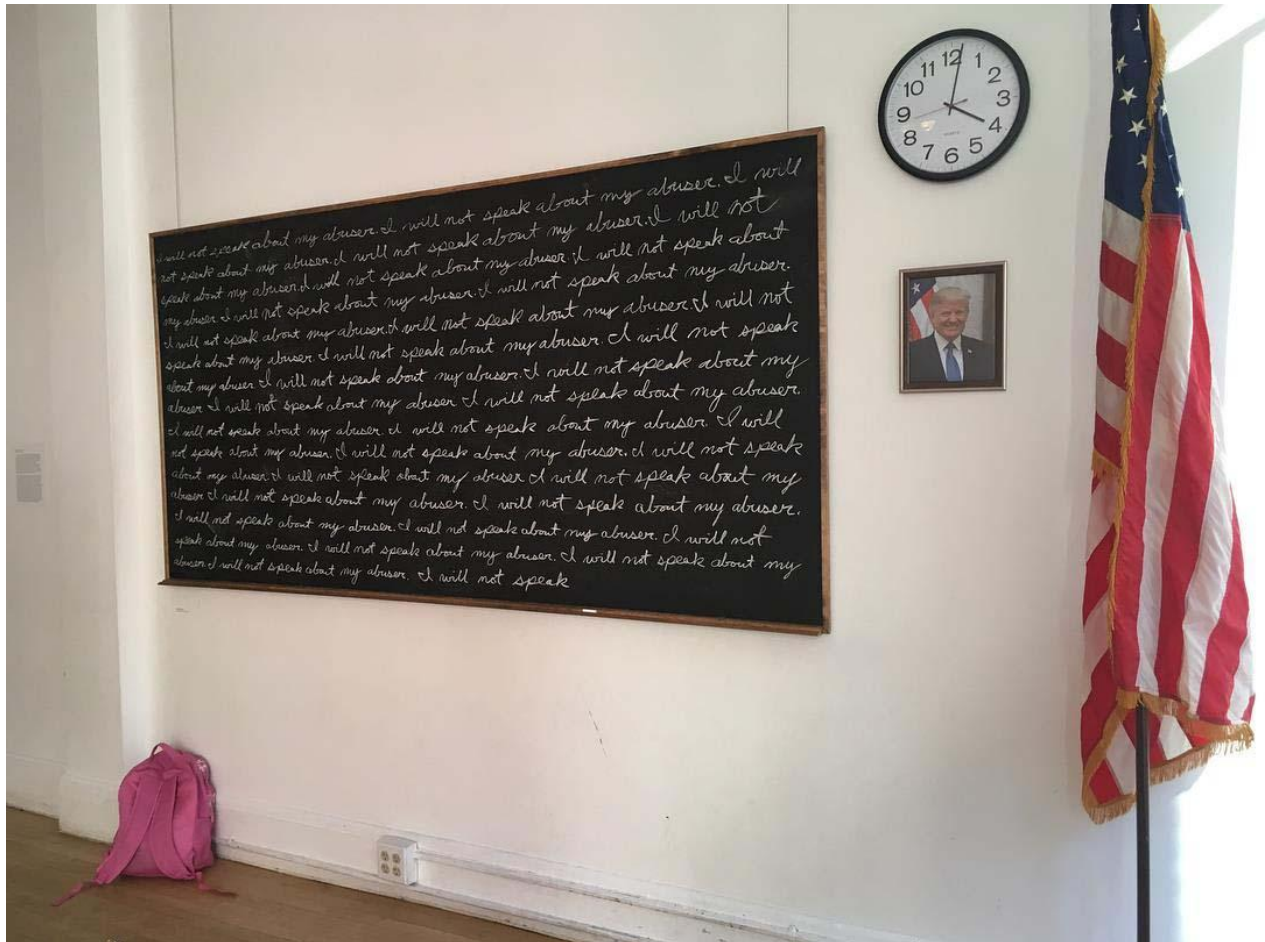 I will not speak about my abuser. I will not speak about my abuser. I will
not speak about my abuser. I will not speak about my abuser. I will not
speak about my abuser. I will not speak about my abuser. I will not speak about
my abuser. I will not speak about my abuser. I will not speak about my abuser.
I will not speak about my abuser. I will not speak about my abuser. I will not
speak about my abuser. I will not speak about my abuser. I will not speak
about my abuser. I will not speak about my abuser. I will not speak about my
abuser. I will not speak about my abuser. I will not speak about my abuser.
I will not speak about my abuser. I will not speak about my abuser. I will
not speak about my abuser. I will not speak about my abuser. I will not speak
about my abuser. I will not speak about my abuser. I will not speak about my
abuser. I will not speak about my abuser. I will not speak about my abuser.
I will not speak about my abuser. I will not speak about my abuser. I will not
speak about my abuser. I will not speak about my abuser. I will not speak about my
abuser. I will not speak about my abuser. I will not speak
12
1
2
3
4
5
6
7
8
9
10
11